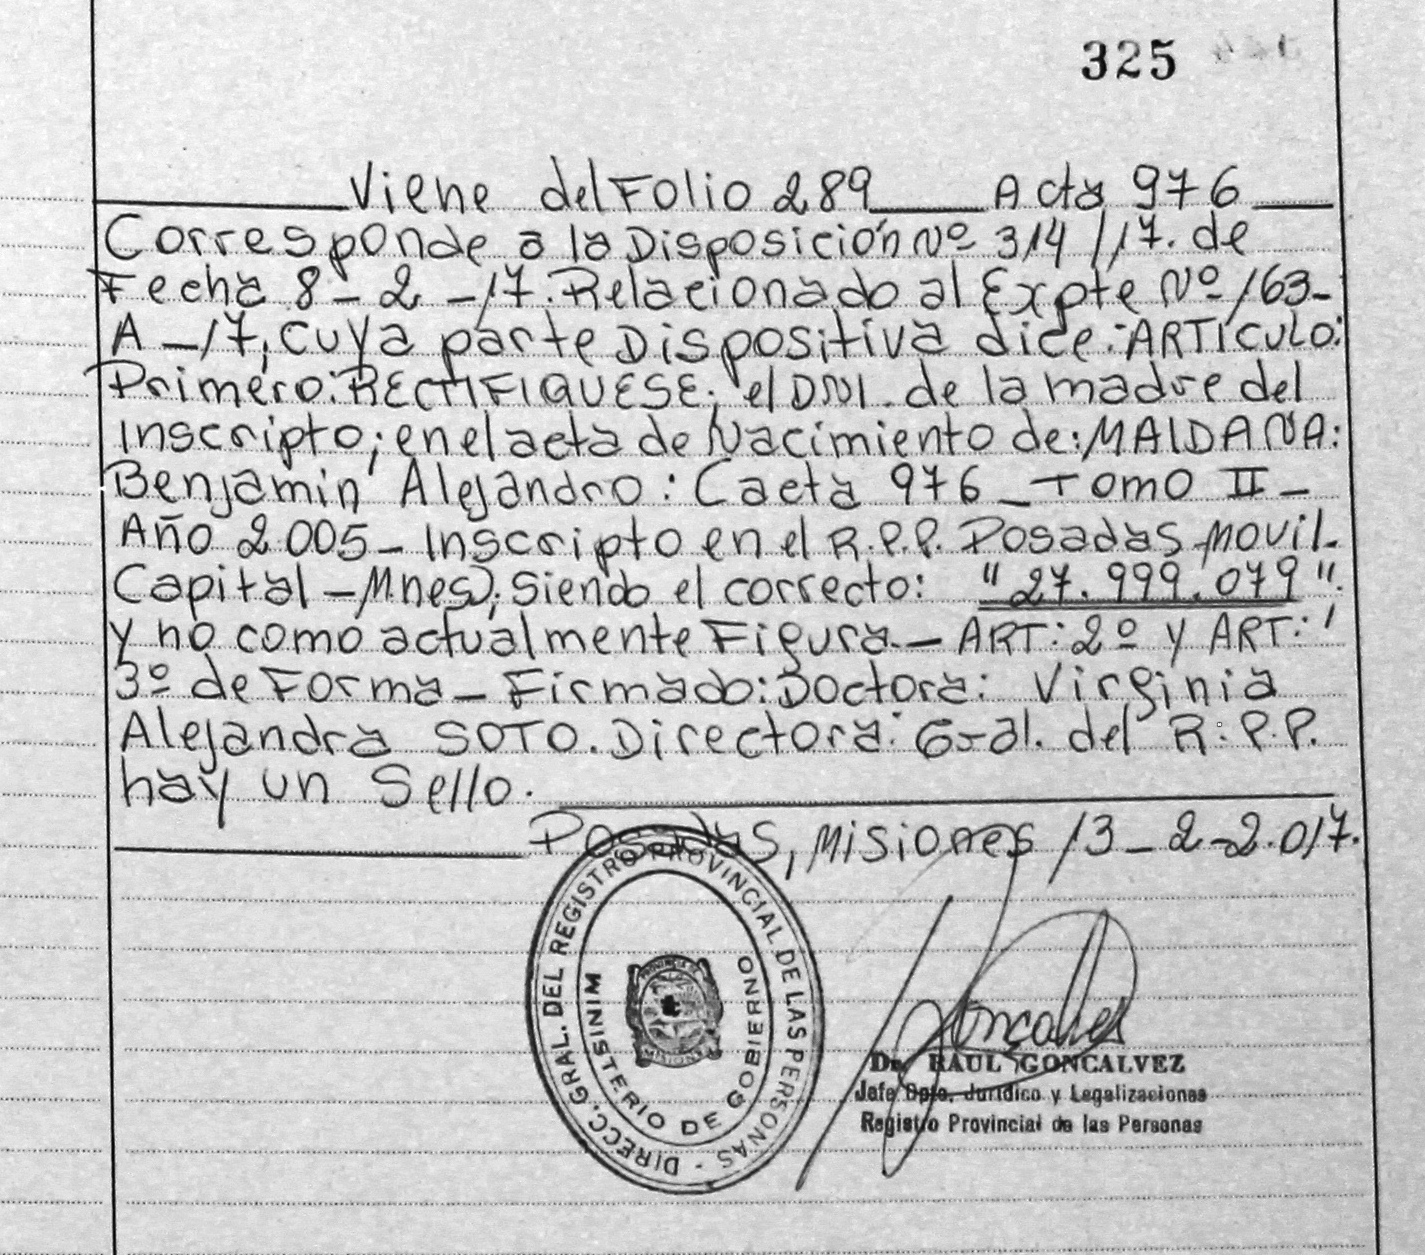 325
Viene del Folio 289 Acta 976
Corresponde a la Disposición Nº 314/17. de
Fecha 8-2-17. Relacionado al Expte Nº 163-
A-17, cuya parte Dispositiva dice: ARTICULO:
Primero: RECTIFIQUESE; el DNI. de la madre del
Inscripto; en el acta de Nacimiento de: MALDANA:
Benjamin Alejandro: (acta 976 - Tomo II -
Año 2.005 - Inscripto en el R.P.P. Posadas Movil.
Capital - Mnes); Siendo el correcto: "27.999.079".
y no como actualmente Figura.- ART: 2º y ART:
3º de Forma - Firmado: Doctora: Virginia
Alejandra SOTO. Directora: Gral. del R.P.P.
hay un Sello.
Posadas, Misiones 13-2-2.017.
DIRECC. GRAL. DEL REGISTRO PROVINCIAL DE LAS PERSONAS -
MINISTERIO DE GOBIERNO
MISIONES
Goncalvez
Dr. RAUL GONCALVEZ
Jefe Dpto. Jurídico y Legalizaciones
Registro Provincial de las Personas